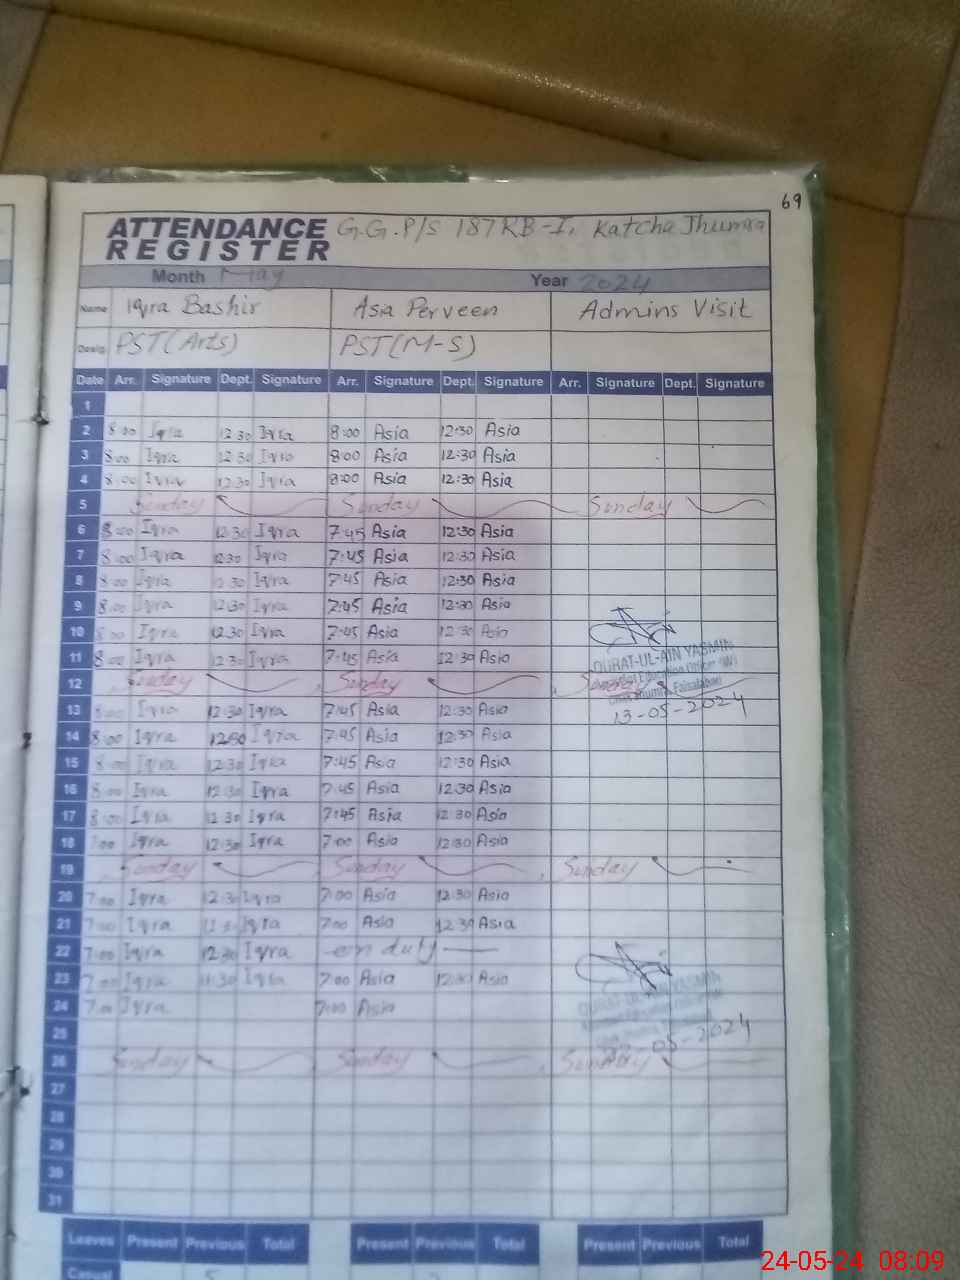 69
ATTENDANCE REGISTER G.G.P/S 187RB-I, Katcha Jhumra
Month May Year 2024
Name Iqra Bashir Asia Perveen Admins Visit
Desig. PST(Arts) PST(M-S)
Date Arr. Signature Dept. Signature Arr. Signature Dept. Signature Arr. Signature Dept. Signature
1
2 8:00 Iqra 12:30 Iqra 8:00 Asia 12:30 Asia
3 8:00 Iqra 12:30 Iqra 8:00 Asia 12:30 Asia
4 8:00 Iqra 12:30 Iqra 8:00 Asia 12:30 Asia
5 Sunday Sunday Sunday
6 8:00 Iqra 12:30 Iqra 7:45 Asia 12:30 Asia
7 8:00 Iqra 12:30 Iqra 7:45 Asia 12:30 Asia
8 8:00 Iqra 12:30 Iqra 7:45 Asia 12:30 Asia
9 8:00 Iqra 12:30 Iqra 7:45 Asia 12:30 Asia
10 8:00 Iqra 12:30 Iqra 7:45 Asia 12:30 Asia
11 8:00 Iqra 12:30 Iqra 7:45 Asia 12:30 Asia QURAT-UL-AIN YASMIN
Education Officer (W)
12 Sunday Sunday Sunday
Jhumra, Faisalabad
13 8:00 Iqra 12:30 Iqra 7:45 Asia 12:30 Asia 13-05-2024
14 8:00 Iqra 12:30 Iqra 7:45 Asia 12:30 Asia
15 8:00 Iqra 12:30 Iqra 7:45 Asia 12:30 Asia
16 8:00 Iqra 12:30 Iqra 7:45 Asia 12:30 Asia
17 8:00 Iqra 12:30 Iqra 7:45 Asia 12:30 Asia
18 7:00 Iqra 12:30 Iqra 7:00 Asia 12:30 Asia
19 Sunday Sunday Sunday
20 7:00 Iqra 12:30 Iqra 7:00 Asia 12:30 Asia
21 7:00 Iqra 11:30 Iqra 7:00 Asia 12:30 Asia
22 7:00 Iqra 12:30 Iqra on duty
23 7:00 Iqra 11:30 Iqra 7:00 Asia 12:30 Asia QURAT-UL-AIN YASMIN
24 7:00 Iqra 7:00 Asia
25 05-2024
26 Sunday Sunday Sunday
27
28
29
30
31
Leaves Present Previous Total Present Previous Total Present Previous Total
Casual
24-05-24 08:09